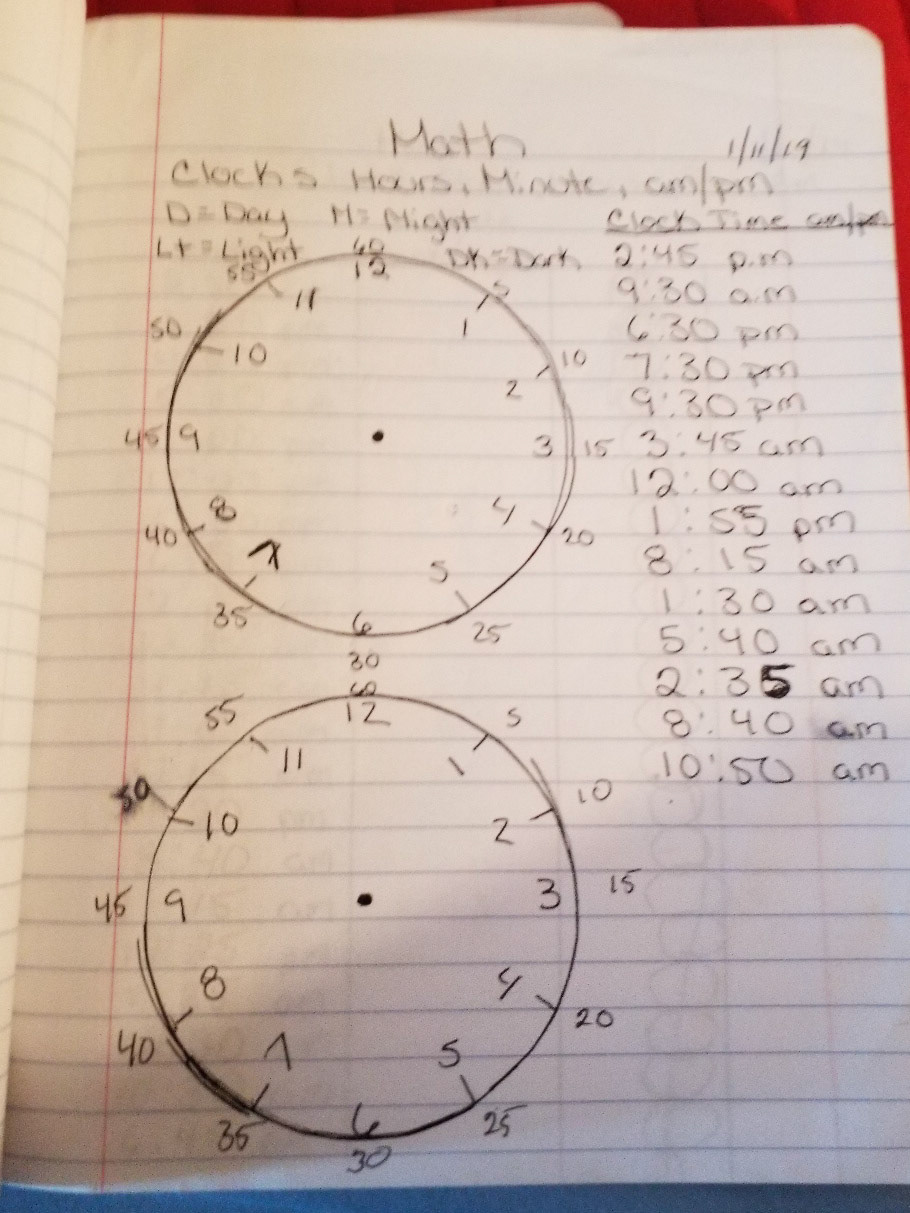 Math
1/11/19
Clocks Hours, Minute, am/pm
D=Day N=Night
Lt=Light Dk=Dark
Clock Time am/pm
2:45 p.m
9:30 a.m
6:30 pm
7:30 pm
9:30 pm
3:45 am
12:00 am
1:55 pm
8:15 am
1:30 am
5:40 am
2:35 am
8:40 am
10:50 am
60
12
55 11 1 5
50 10 2 10
45 9 3 15
40 8 4 20
35 7 5 25
6
30
60
12
55 11 1 5
50 10 2 10
45 9 3 15
40 8 4 20
35 7 5 25
6
30